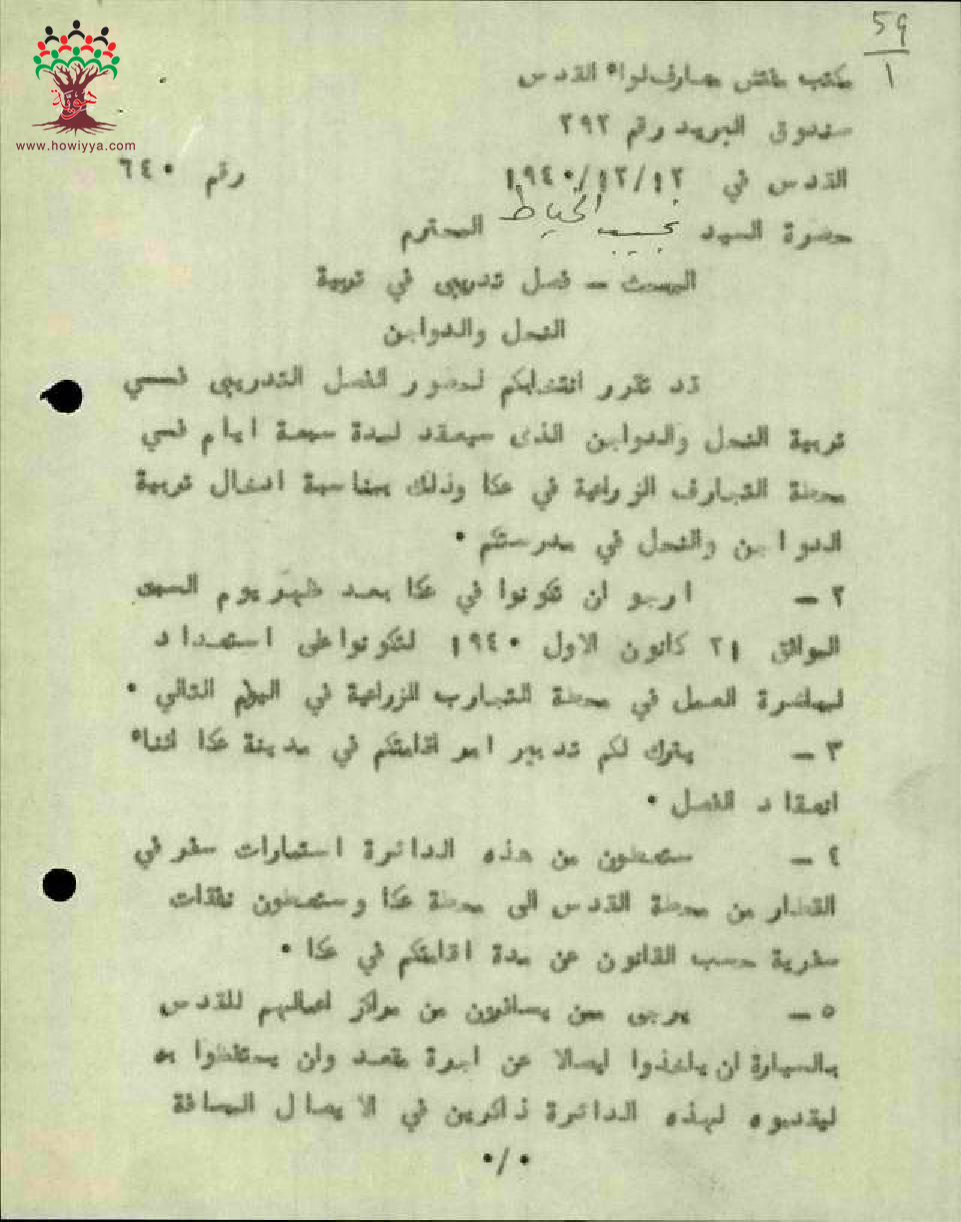 هوية
www.howiyya.com
59
1
مكتب مفتش معارف لواء القدس
صندوق البريد رقم ٢٩٢
القدس في ١٩٤٠/١٢/١٢ رقم ٦٤٠
حضرة السيد نجيب الخياط المحترم
البحث - فصل تدريبي في تربية
النحل والدواجن
قد تقرر انتخابكم لحضور الفصل التدريبى فسي
تربية النحل والدواجن الذى سيعقد لمدة سبعة ايام فسي
محطة التجارف الزراعية في عكا وذلك بمناسبة ادخال تربية
الدواجن والنحل في مدرستكم •
٢ - ارجو ان تكونوا في عكا بعد ظهر يوم السبت
الموافق ٢١ كانون الاول ١٩٤٠ لتكونوا على استعداد
لمباشرة العمل في محطة التجارب الزراعية في اليوم التالي •
٣ - يترك لكم تدبير امر اقامتكم في مدينة عكا اثناء
انعقاد الفصل •
٤ - ستعطون من هذه الدائرة استمارات سفر في
القطار من محطة القدس الى محطة عكا وستعطون نفقات
سفرية حسب القانون عن مدة اقامتكم في عكا •
٥ - يرجى ممن يسافرون من مراكز اعمالهم للقدس
بالسيارة ان ياخذوا ايصالا عن اجرة مقعد وان يحتفظوا به
ليقدموه لهذه الدائرة ذاكرين في الايصال المسافة
•/•